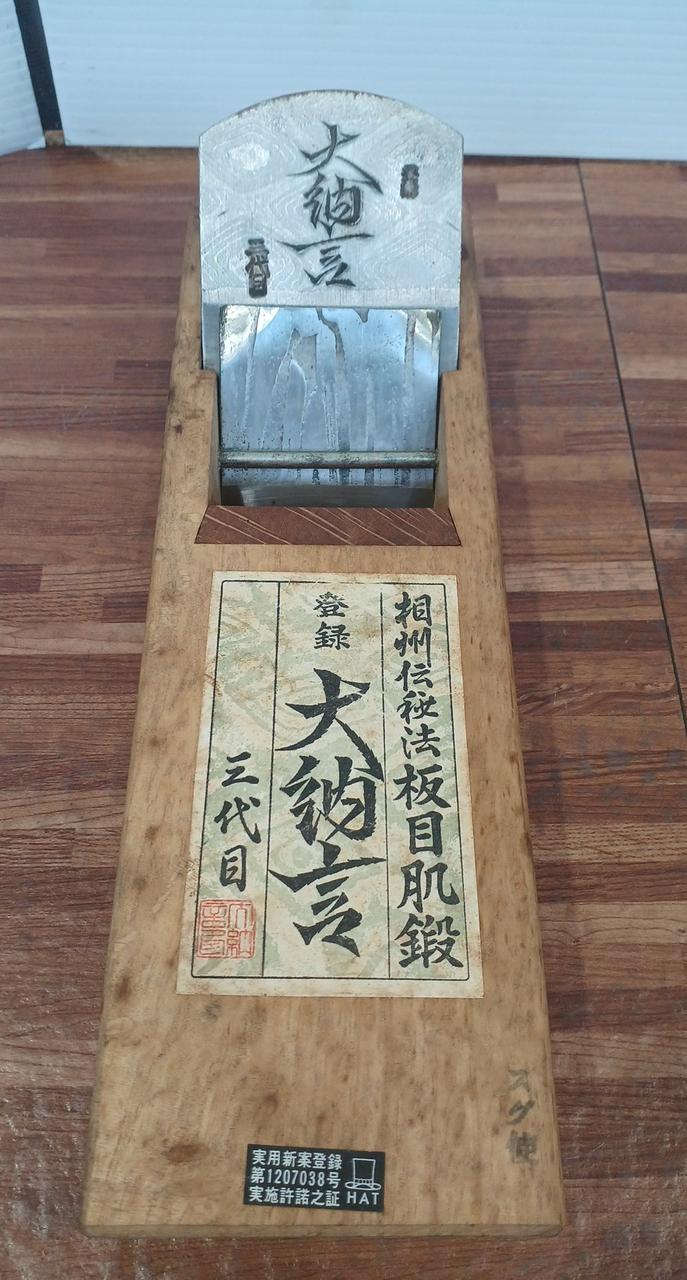 大納言
三代目
相州伝秘法板目肌鍛
登録
大納言
三代目
大納言
スグ使
実用新案登録
第1207038号
実施許諾之証
HAT